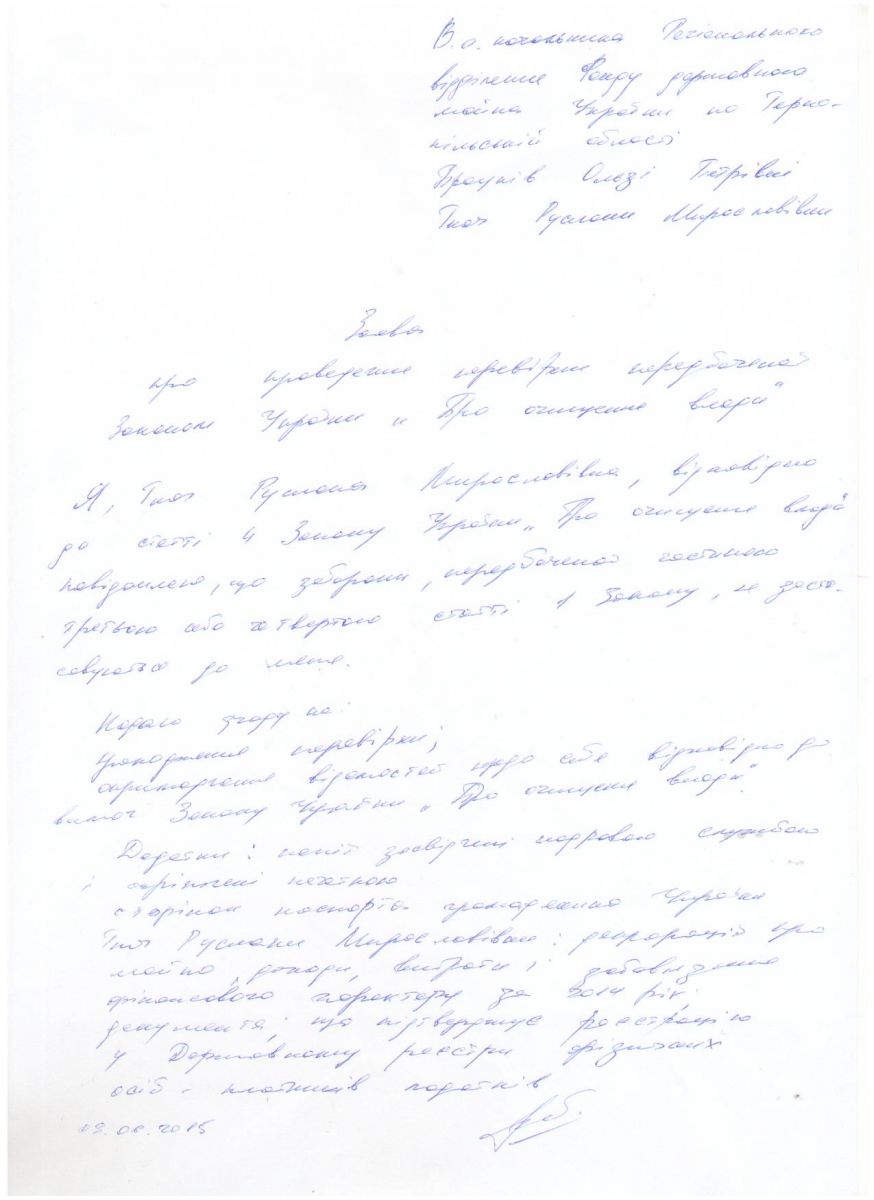 В.о. начальника Регіонального
відділення Фонду державного
майна України по Терно-
пільській області
Ользі Петрівні
Ткач Руслани Мирославівни
Заява
про проведення перевірки передбаченої
Законом України „Про очищення влади"
Я, Ткач Руслана Мирославівна, відповідно
до статті 4 Закону України „Про очищення влади"
повідомляю, що заборони, передбаченої частиною
третьою або четвертою статті 1 Закону, не засто-
совуються до мене.
Надаю згоду на:
проходження перевірки;
оприлюднення відомостей щодо себе відповідно до
вимог Закону України „Про очищення влади".
Додатки: копії засвідчені кадровою службою
і скріплені печаткою
сторінок паспорта громадянина України
Ткач Руслани Мирославівни: декларацій про
майно, доходи, витрати і забов'язання
фінансового характеру за 2014 рік;
документа, що підтверджує реєстрацію
у Державному реєстри фізичних
осіб - платників податків